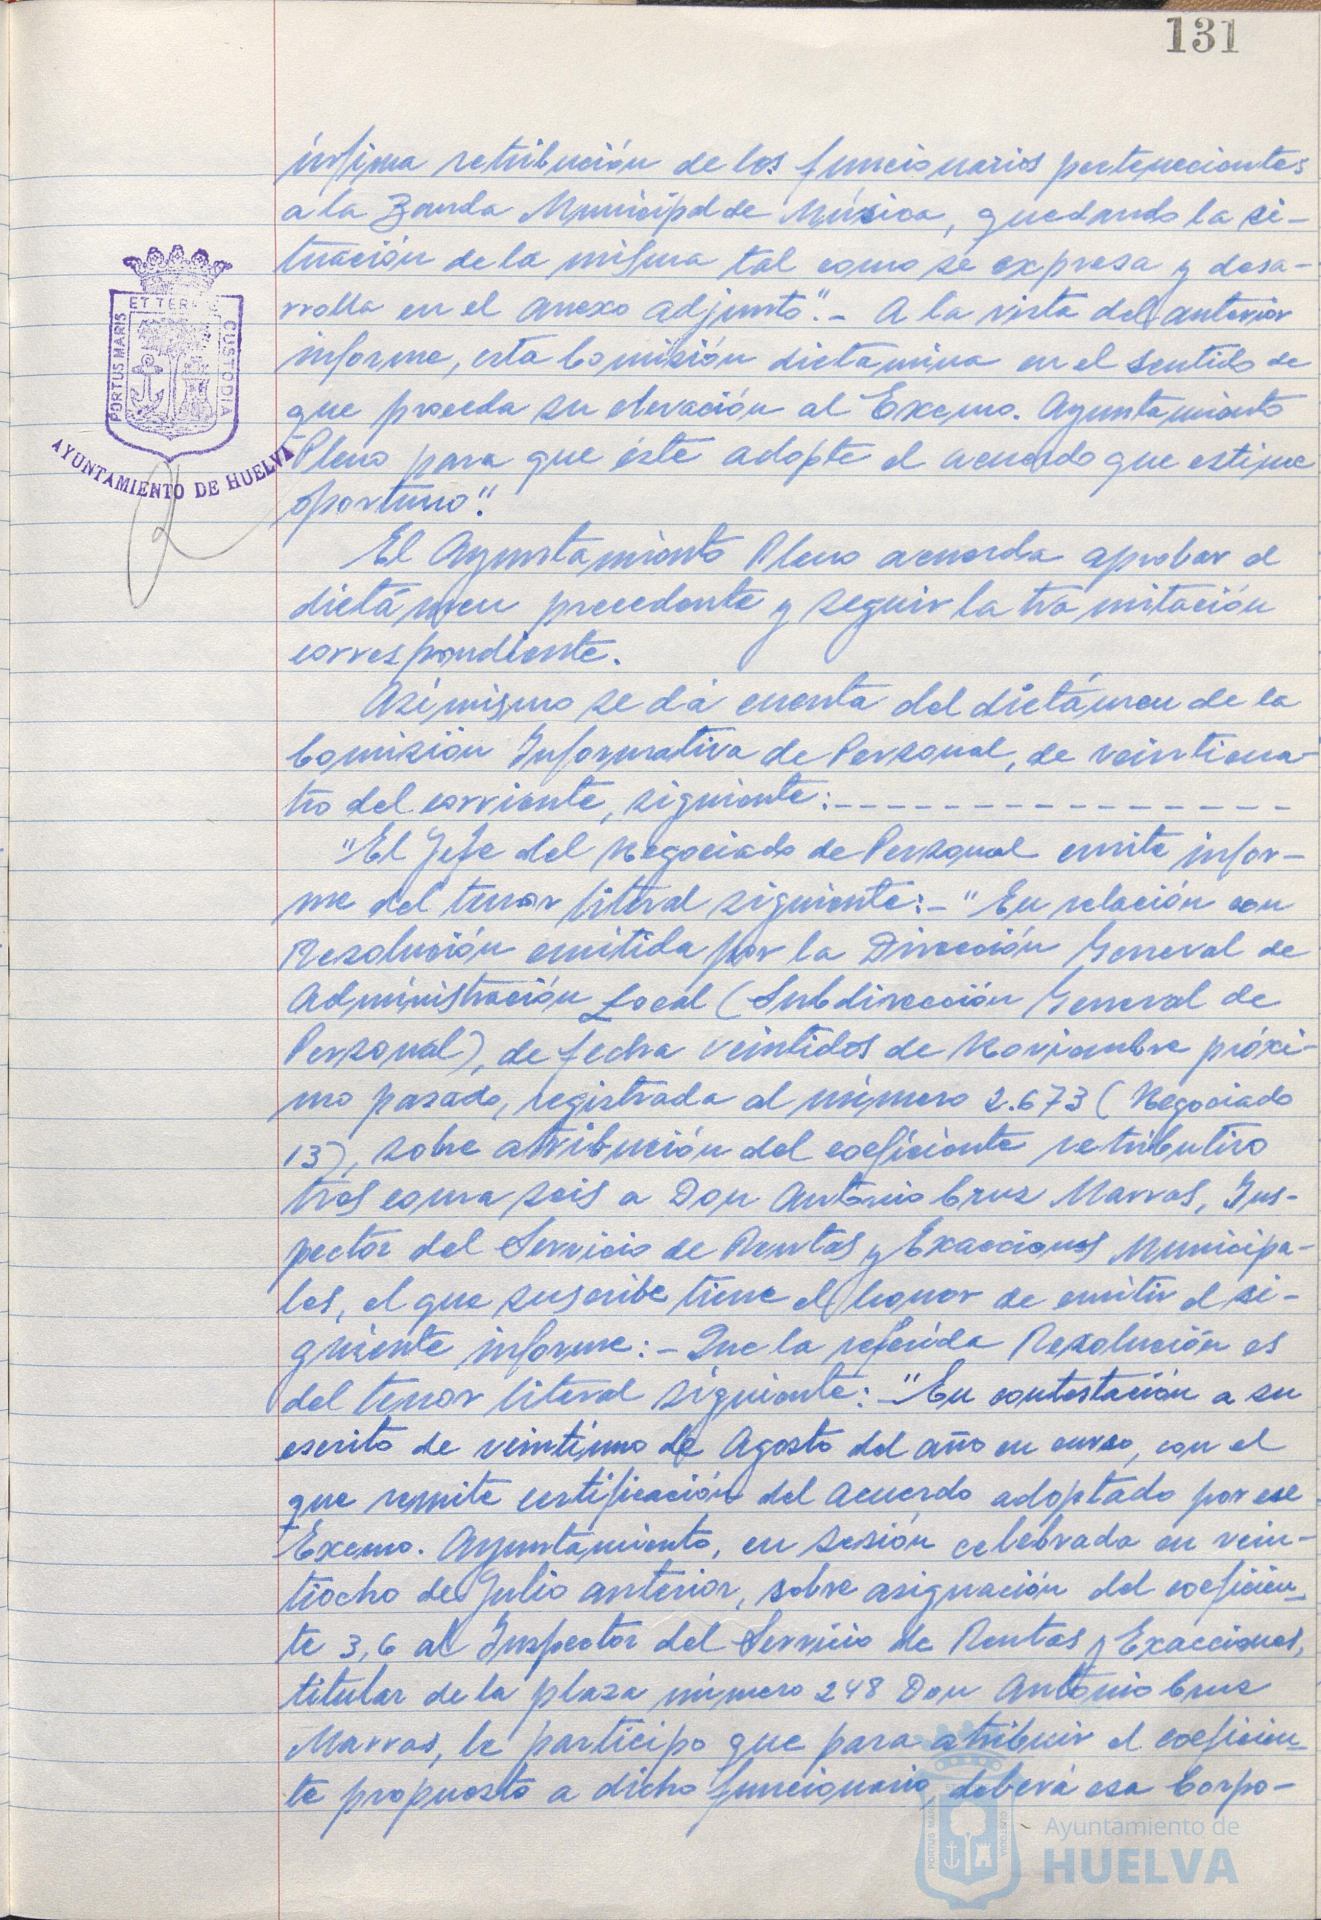 131
ínfima retribución de los funcionarios pertenecientes
a la Banda Municipal de Música, quedando la si-
tuación de la misma tal como se expresa y desa-
rrolla en el anexo adjunto".- A la vista del anterior
informe, esta Comisión dictamina en el sentido de
que proceda su elevación al Excmo. Ayuntamiento
Pleno para que éste adopte el acuerdo que estime
oportuno".
El Ayuntamiento Pleno acuerda aprobar el
dictámen precedente y seguir la tramitación
correspondiente.
Asímismo se dá cuenta del dictámen de la
Comisión Informativa de Personal, de veinticua-
tro del corriente, siguiente:- - - - - - - - - - - - - - -
"El Jefe del Negociado de Personal emite infor-
me del tenor literal siguiente:- "En relación con
Resolución emitida por la Dirección General de
Administración Local (Subdirección General de
Personal), de fecha veintidos de Noviembre próxi-
mo pasado, registrada al número 2.673 (Negociado
13), sobre atribución del coeficiente retributivo
tres coma seis a Don Antonio Cruz Marras, Ins-
pector del Servicio de Rentas y Exacciones Municipa-
les, el que suscribe tiene el honor de emitir el si-
guiente informe:- Que la referida Resolución es
del tenor literal siguiente:- "En contestación a su
escrito de veintiuno de Agosto del año en curso, con el
que remite certificación del acuerdo adoptado por ese
Excmo. Ayuntamiento, en sesión celebrada en vein-
tiocho de Julio anterior, sobre asignación del coeficien-
te 3,6 al Inspector del Servicio de Rentas y Exacciones,
titular de la plaza número 248 Don Antonio Cruz
Marras, le participo que para atribuir el coeficien-
te propuesto a dicho funcionario, deberá esa Corpo-
PORTUS MARIS ET TERRE CUSTODIA
AYUNTAMIENTO DE HUELVA
PORTUS MARIS CUSTODIA
Ayuntamiento de
HUELVA